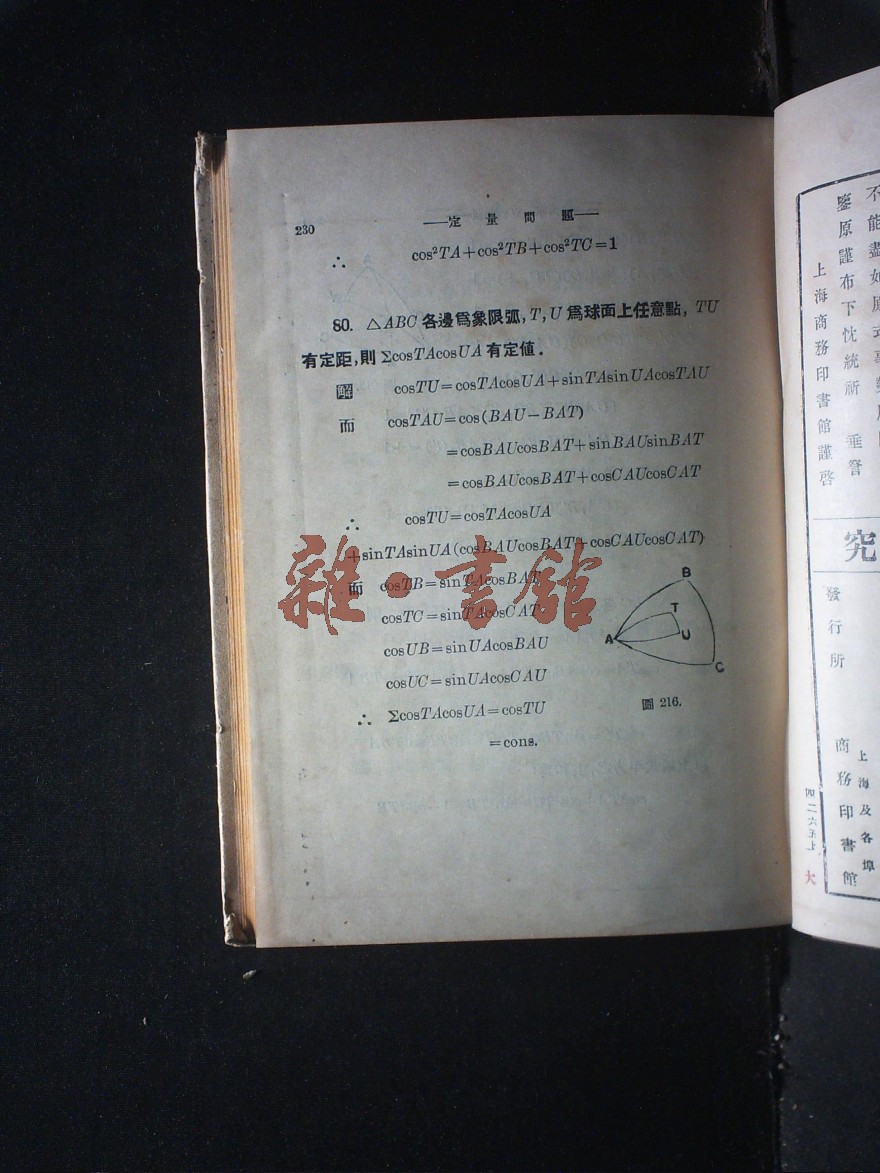 230
——定量問題——
∴ cos²TA+cos²TB+cos²TC=1
80. △ABC 各邊爲象限弧, T, U 爲球面上任意點, TU
有定距, 則 ΣcosTAcosUA 有定値.
解 cosTU=cosTAcosUA+sinTAsinUAcosTAU
而 cosTAU=cos(BAU−BAT)
=cosBAUcosBAT+sinBAUsinBAT
=cosBAUcosBAT+cosCAUcosCAT
∴ cosTU=cosTAcosUA
+sinTAsinUA(cosBAUcosBAT+cosCAUcosCAT)
而 cosTB=sinTAcosBAT
cosTC=sinTAcosCAT
cosUB=sinUAcosBAU
cosUC=sinUAcosCAU
∴ ΣcosTAcosUA=cosTU
=cons.
B
T
A
U
C
圖 216.
雜·書館
不能盡如原式事
鑒原謹布下忱統祈 垂詧
上海商務印書館謹啓
究
發行所
商務印書館
上海及各埠
二六五上
大